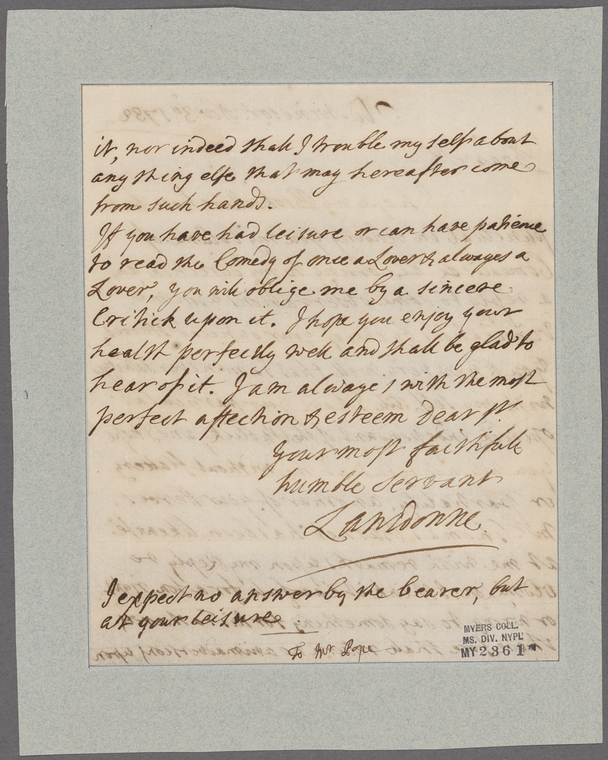 it, nor indeed shall I trouble my self about
any thing else that may hereafter come
from such hands.
If you have had leisure or can have patience
to read the Comedy of once a Lover & always a
Lover, you will oblige me by a sincere
Critick upon it. I hope you enjoy your
health perfectly well and shall be glad to
hear of it. I am always with the most
perfect affection & esteem Dear Sr.
your most faithfull
humble Servant
Lansdowne
I expect no answer by the bearer, but
at your leisure
To Mr. Pope
MYERS COLL.
MS. DIV. NYPL
MY 2361